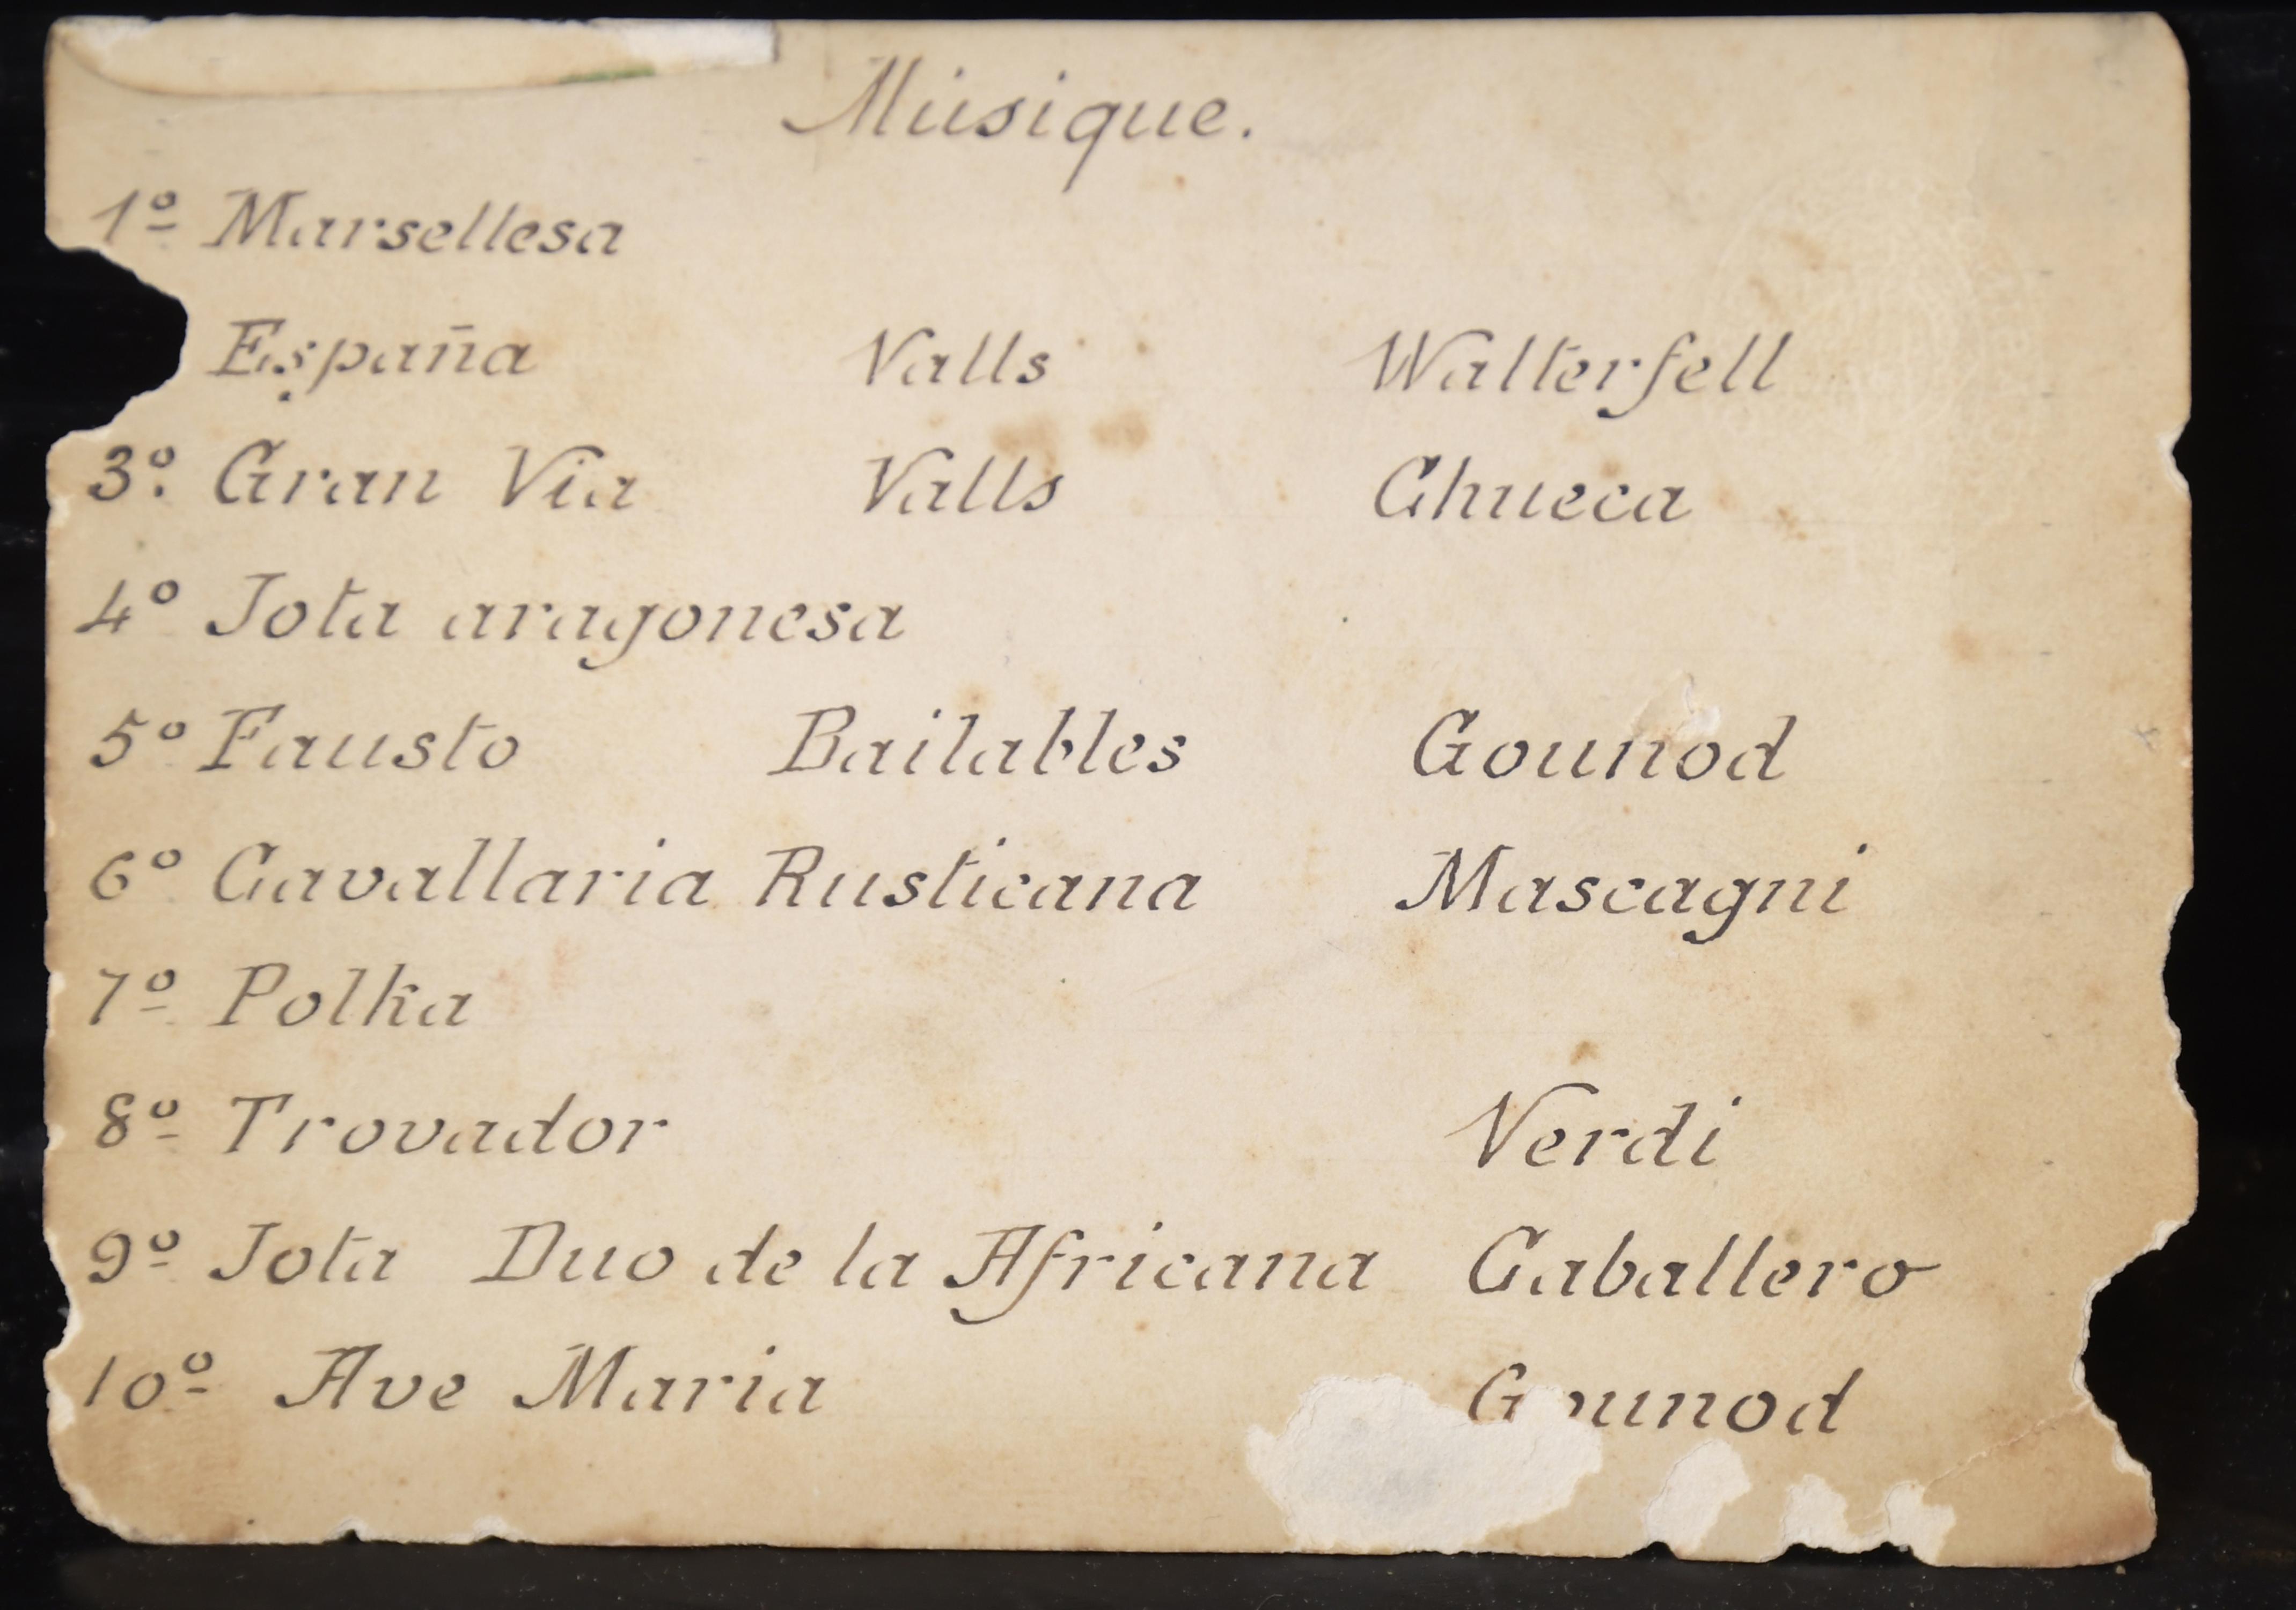 Müsique.
1º Marsellesa
España Valls Walterfell
3º Gran Via Valls Chueca
4º Jota aragonesa
5º Fausto Bailables Gounod
6º Cavallaria Rusticana Mascagni
7º Polka
8º Trovador Verdi
9º Jota Duo de la Africana Caballero
10º Ave Maria Gounod